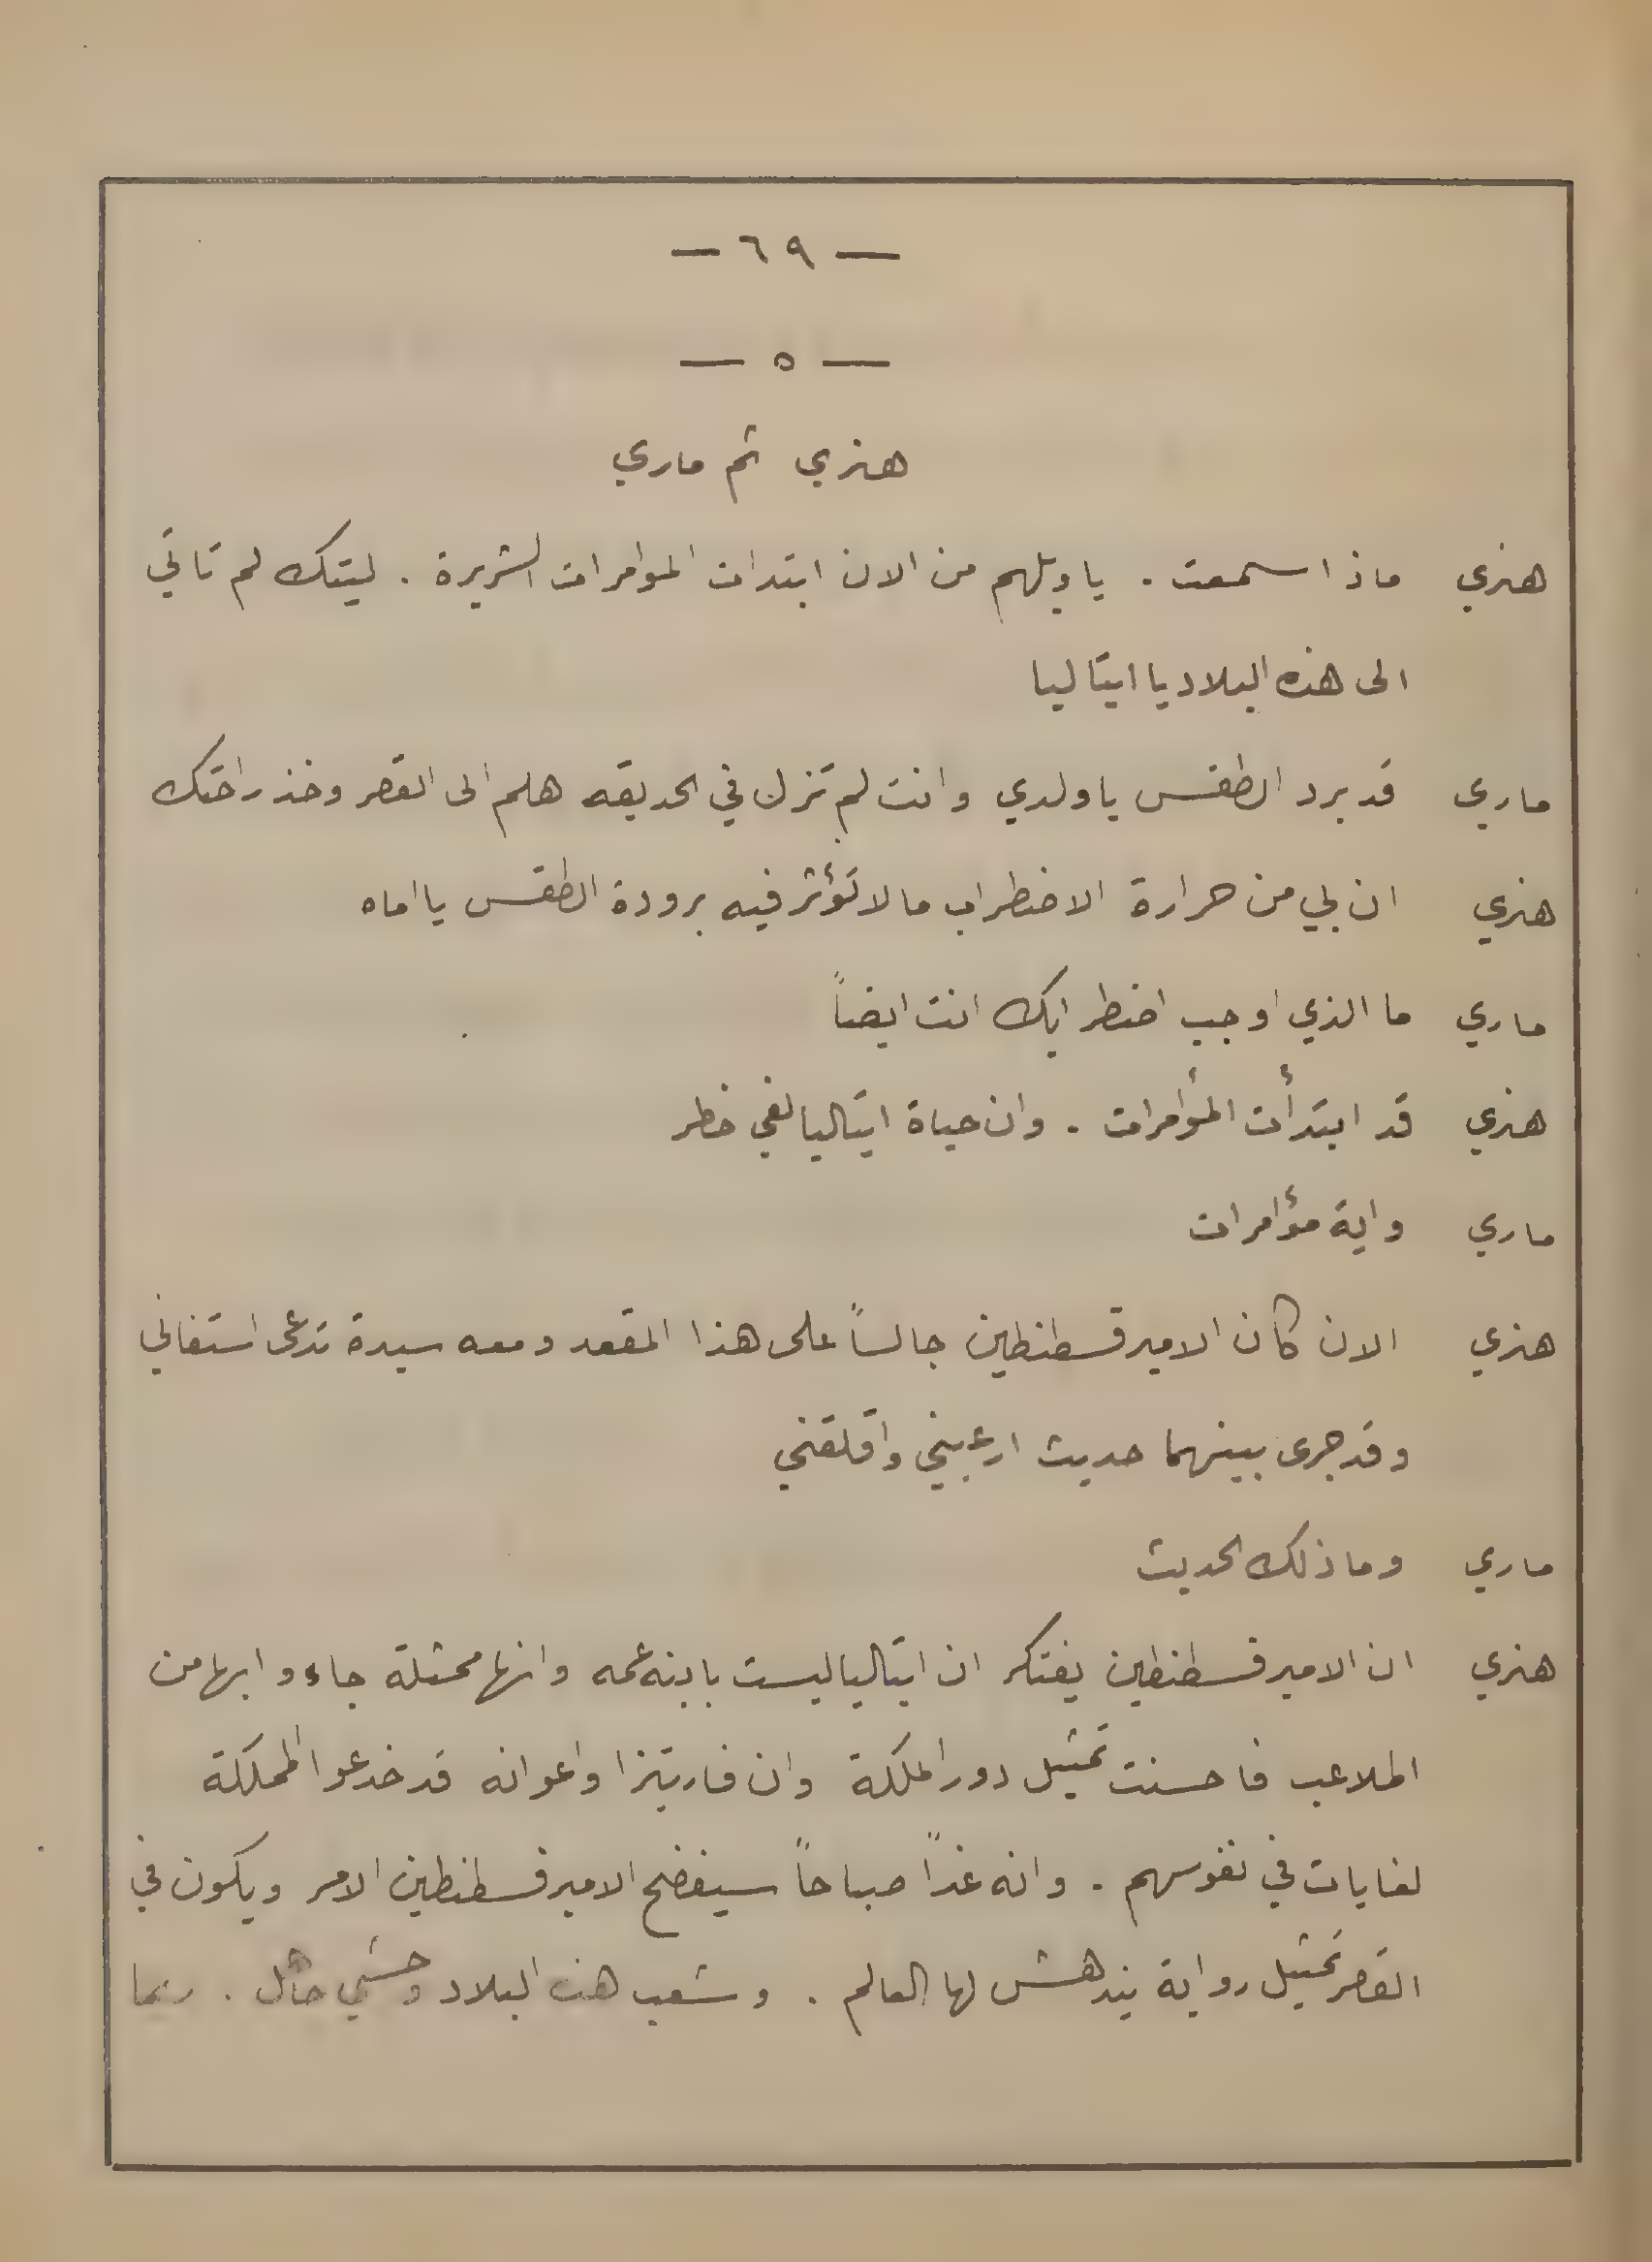 — ٦٩ —
— ٥ —
هنري ثم ماري
هنري ماذا سمعت . يا ويلهم من الان ابتدات الموامرات الشريرة . ليتك لم تاتي
الى هذه البلاد يا ايتاليا
ماري قد برد الطقس يا ولدي وانت لم تزل في الحديقه هلم الى القصر وخذ راحتك
هنري ان لي من حرارة الاضطراب ما لا تؤثر فيه برودة الطقس يا اماه
ماري ما الذي اوجب اضطرابك انت ايضاً
هنري قد ابتدأت المؤامرات . وان حياة ايتاليا لفي خطر
ماري واية مؤامرات
هنري الان كان الامير قسطنطين جالساً على هذا المقعد ومعه سيدة تدعى استفاني
وقد جرى بينهما حديث ارعبني واقلقني
ماري وما ذلك الحديث
هنري ان الامير قسطنطين يفتكر ان ايتاليا ليست بابنة عمه وانها ممثلة جاءوا بها من
الملاعب فاحسنت تمثيل دور الملكة وان فاريتزا واعوانه قد خدعوا المملكة
لغايات في نفوسهم . وانه غداً صباحاً سيفضح الامير قسطنطين الامر ويكون في
القصر تمثيل رواية يندهش لها العالم . وشعب هذه البلاد وحشي . ربما